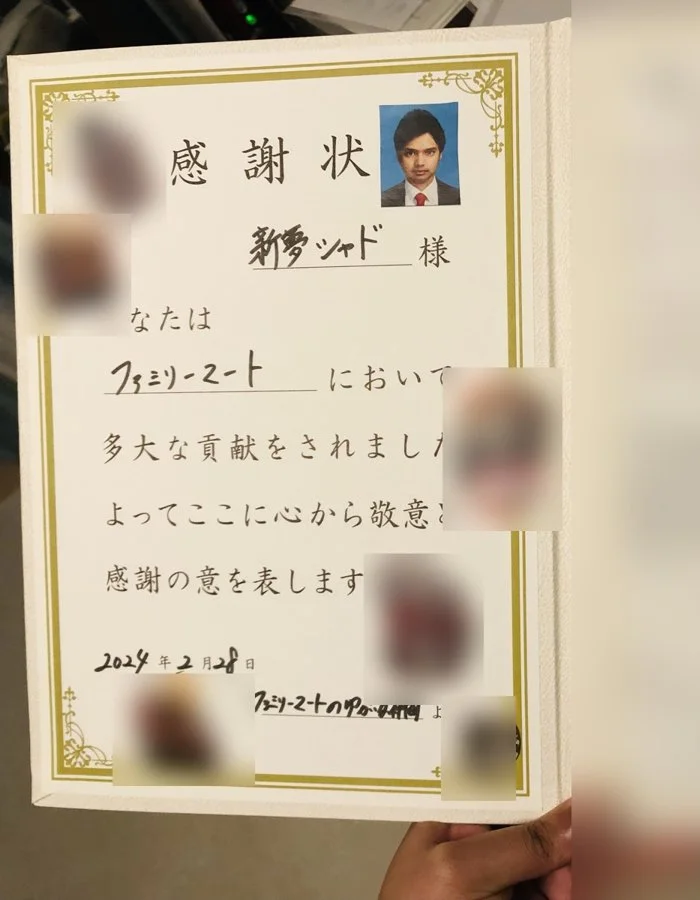 感謝状
新夢シャド 様
なたは
ファミリーマート において
多大な貢献をされました
よってここに心から敬意と
感謝の意を表します
2024年2月28日
ファミリーマートのゆかいな仲間 よ